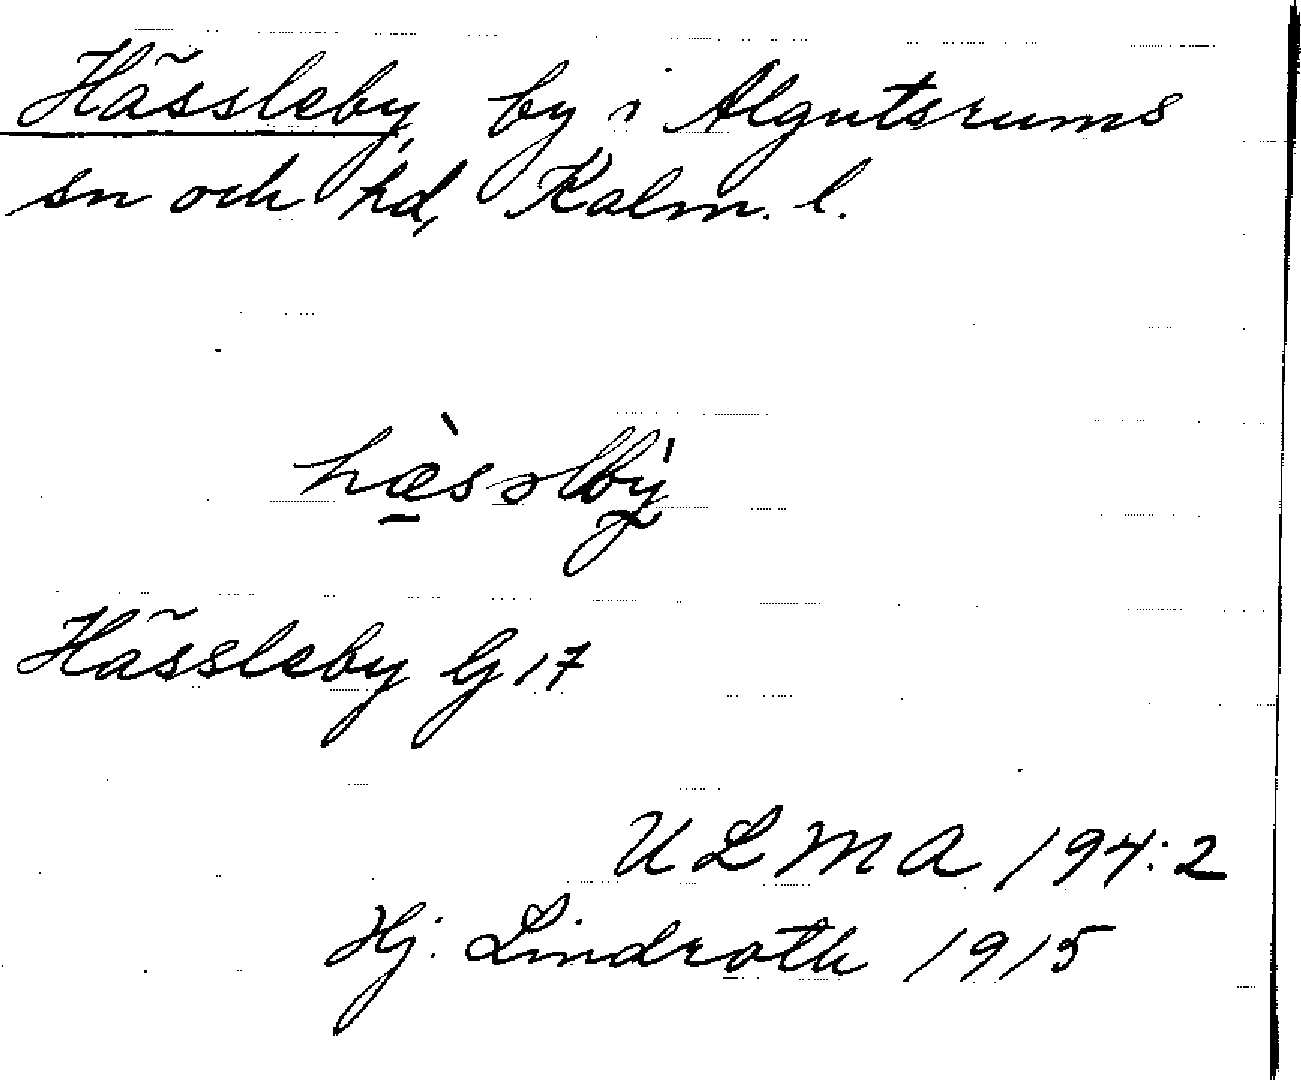 Hässleby, by i Algutsrums
sn och hd, Kalm. l.
hæ̠̀ssəlbý
Hässleby G 17
ULMA 194:2
Hj. Lindroth 1915